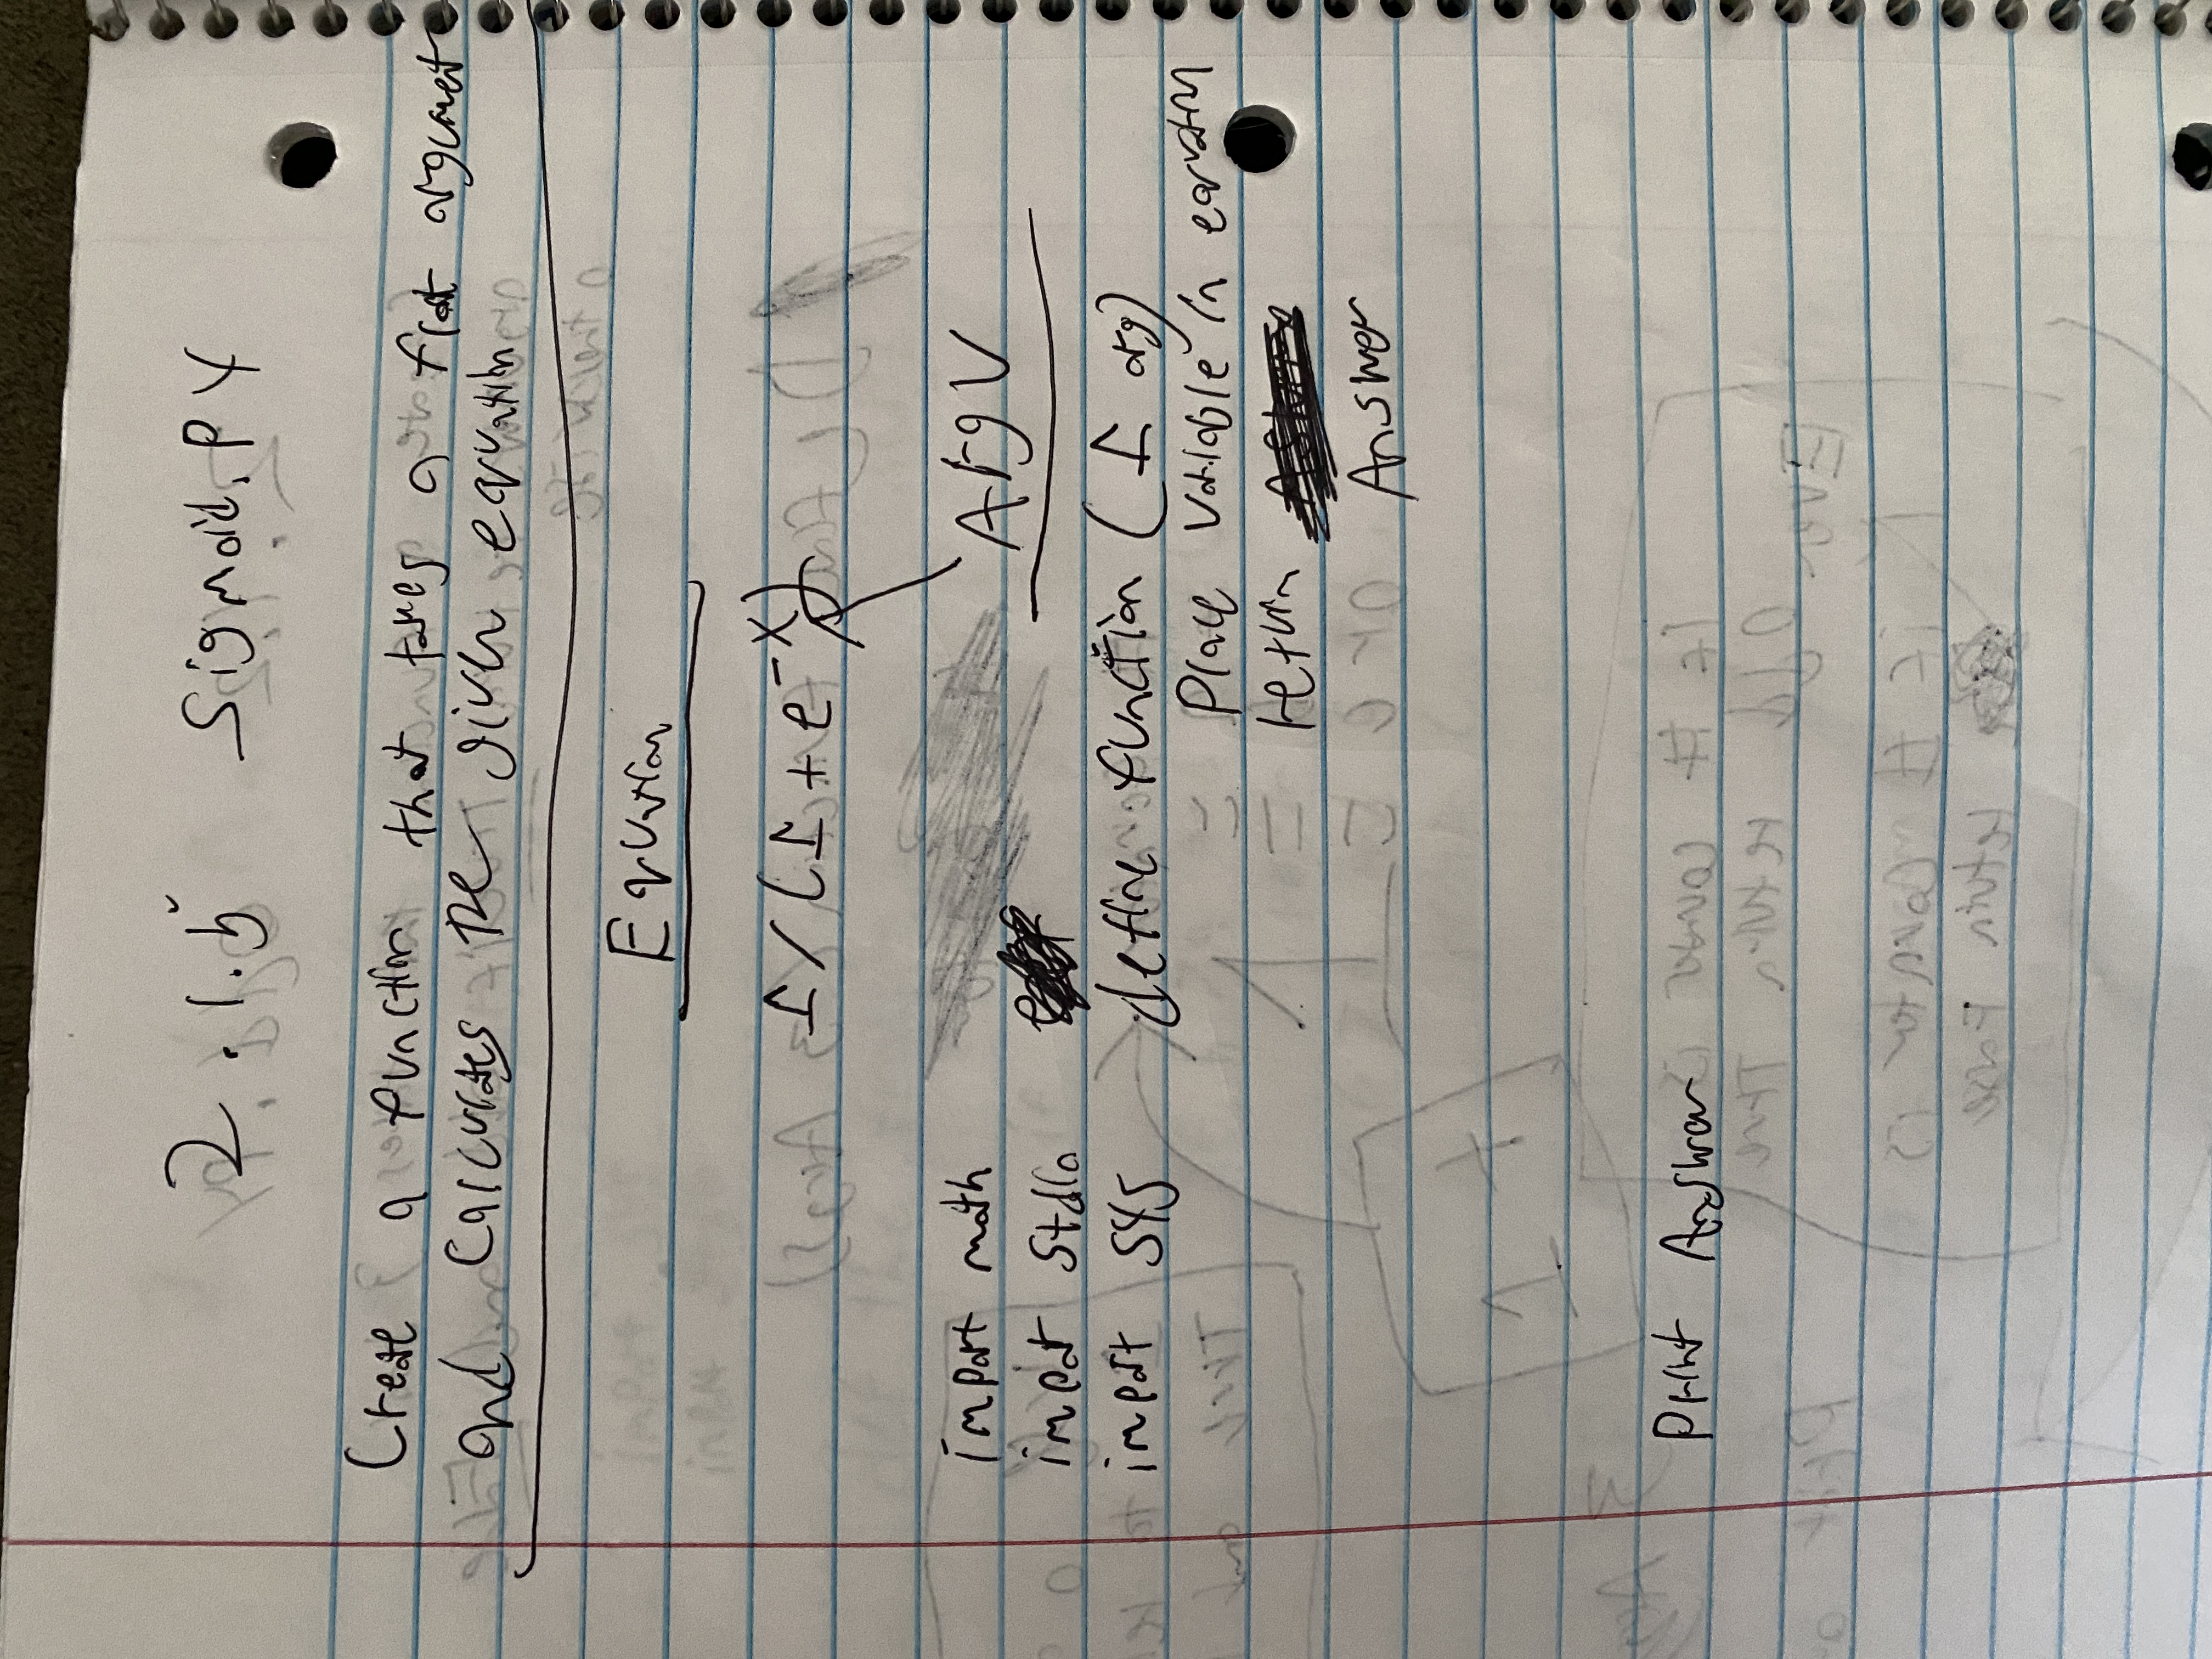 2.1.5 Sigmoid.PY
Create a function that takes a float argument
and calculates the given equation
Equation
1/(1+e^-x)
ArgV
import math
import stdio
import sys
define function (1 arg)
Place Variable in equation
return
Answer
Print Answer